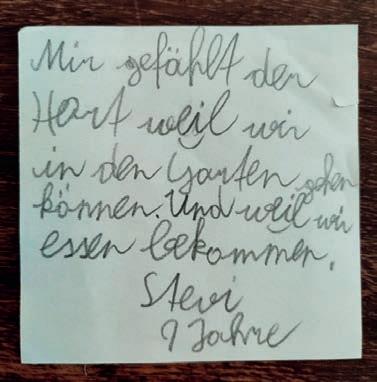 Mir gefählt der
Hort weil wir
in den Garten gehen
können. Und weil wir
essen bekommen.
Stevi
9 Jahre